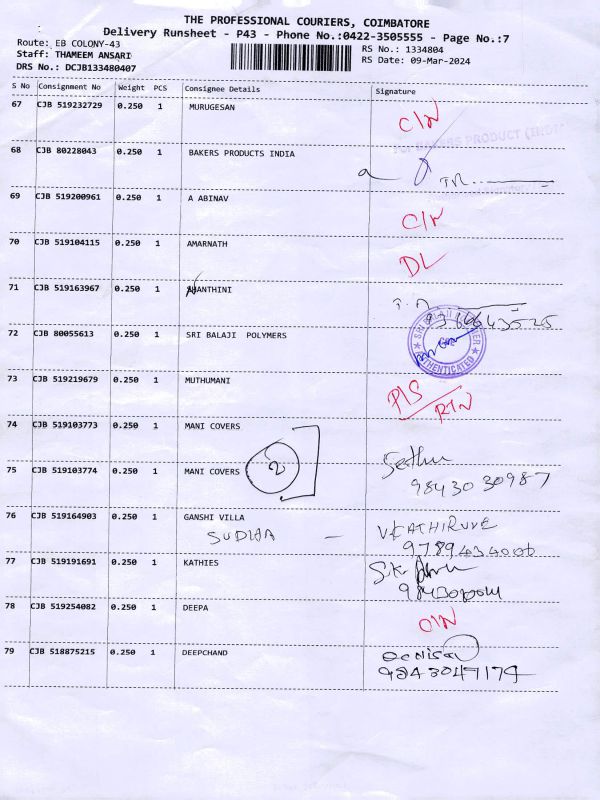 THE PROFESSIONAL COURIERS, COIMBATORE
Delivery Runsheet - P43 - Phone No.:0422-3505555 - Page No.:7
Route: EB COLONY-43
Staff: THAMEEM ANSARI
DRS No.: DCJB133480407
RS No.: 1334804
RS Date: 09-Mar-2024
S No Consignment No Weight PCS Consignee Details Signature
67 CJB 519232729 0.250 1 MURUGESAN
68 CJB 80228043 0.250 1 BAKERS PRODUCTS INDIA
69 CJB 519200961 0.250 1 A ABINAV
70 CJB 519104115 0.250 1 AMARNATH DL
71 CJB 519163967 0.250 1
72 CJB 80055613 0.250 1 SRI BALAJI POLYMERS
AUTHENTICATED
73 CJB 519219679 0.250 1 MUTHUMANI
74 CJB 519103773 0.250 1 MANI COVERS
75 CJB 519103774 0.250 1 MANI COVERS 2 Sethu
98430 30987
76 CJB 519164903 0.250 1 GANSHI VILLA
SUDHA - VKATHIRUVE
77 CJB 519191691 0.250 1 KATHIES
78 CJB 519254082 0.250 1 DEEPA
79 CJB 518875215 0.250 1 DEEPCHAND
9843047174